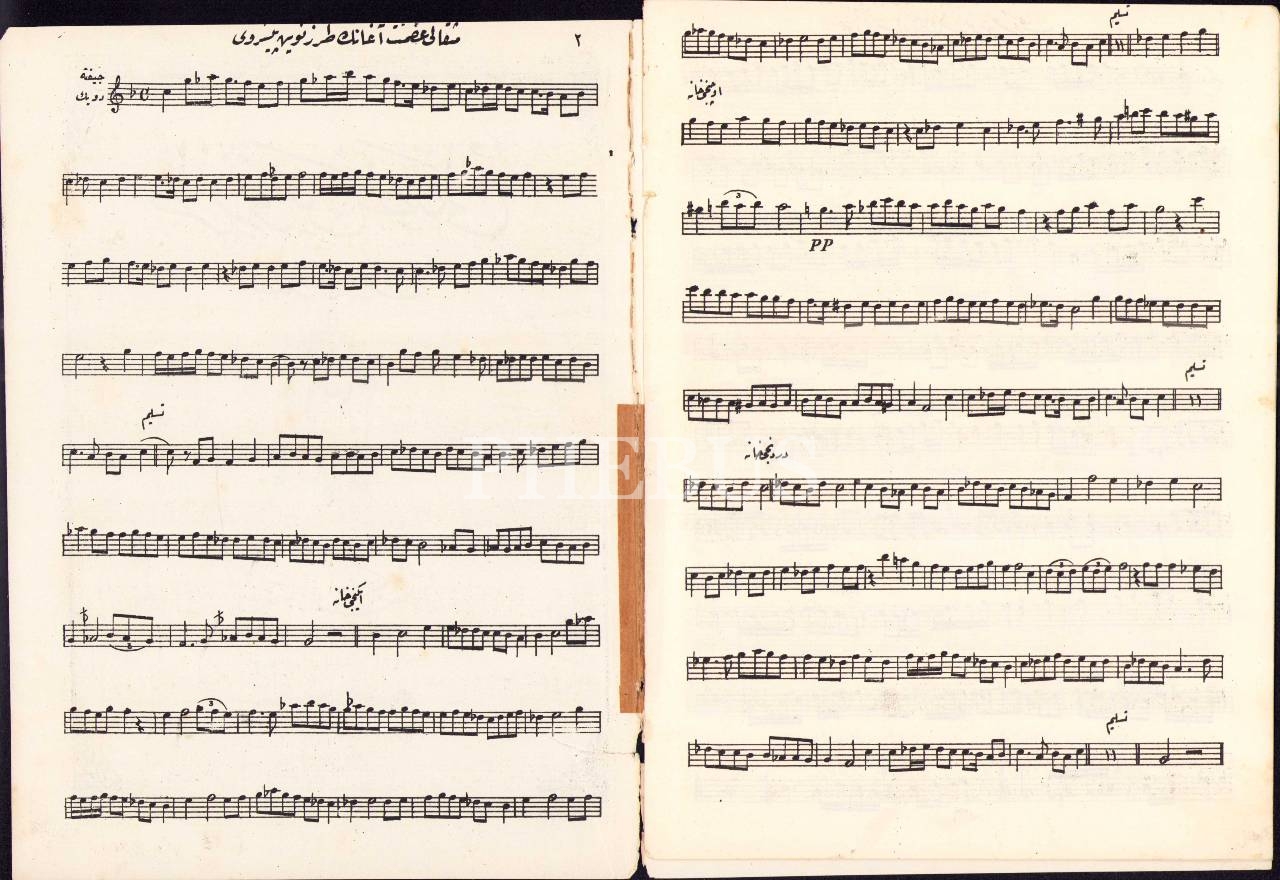 عصمت آغانك طرز نوین پیشروی
٢
چفته
دویك
تسلیم
ایكنجی خانه
تسلیم
اوچنجی خانه
PP
تسلیم
دردنجی خانه
تسلیم
PHEBUS